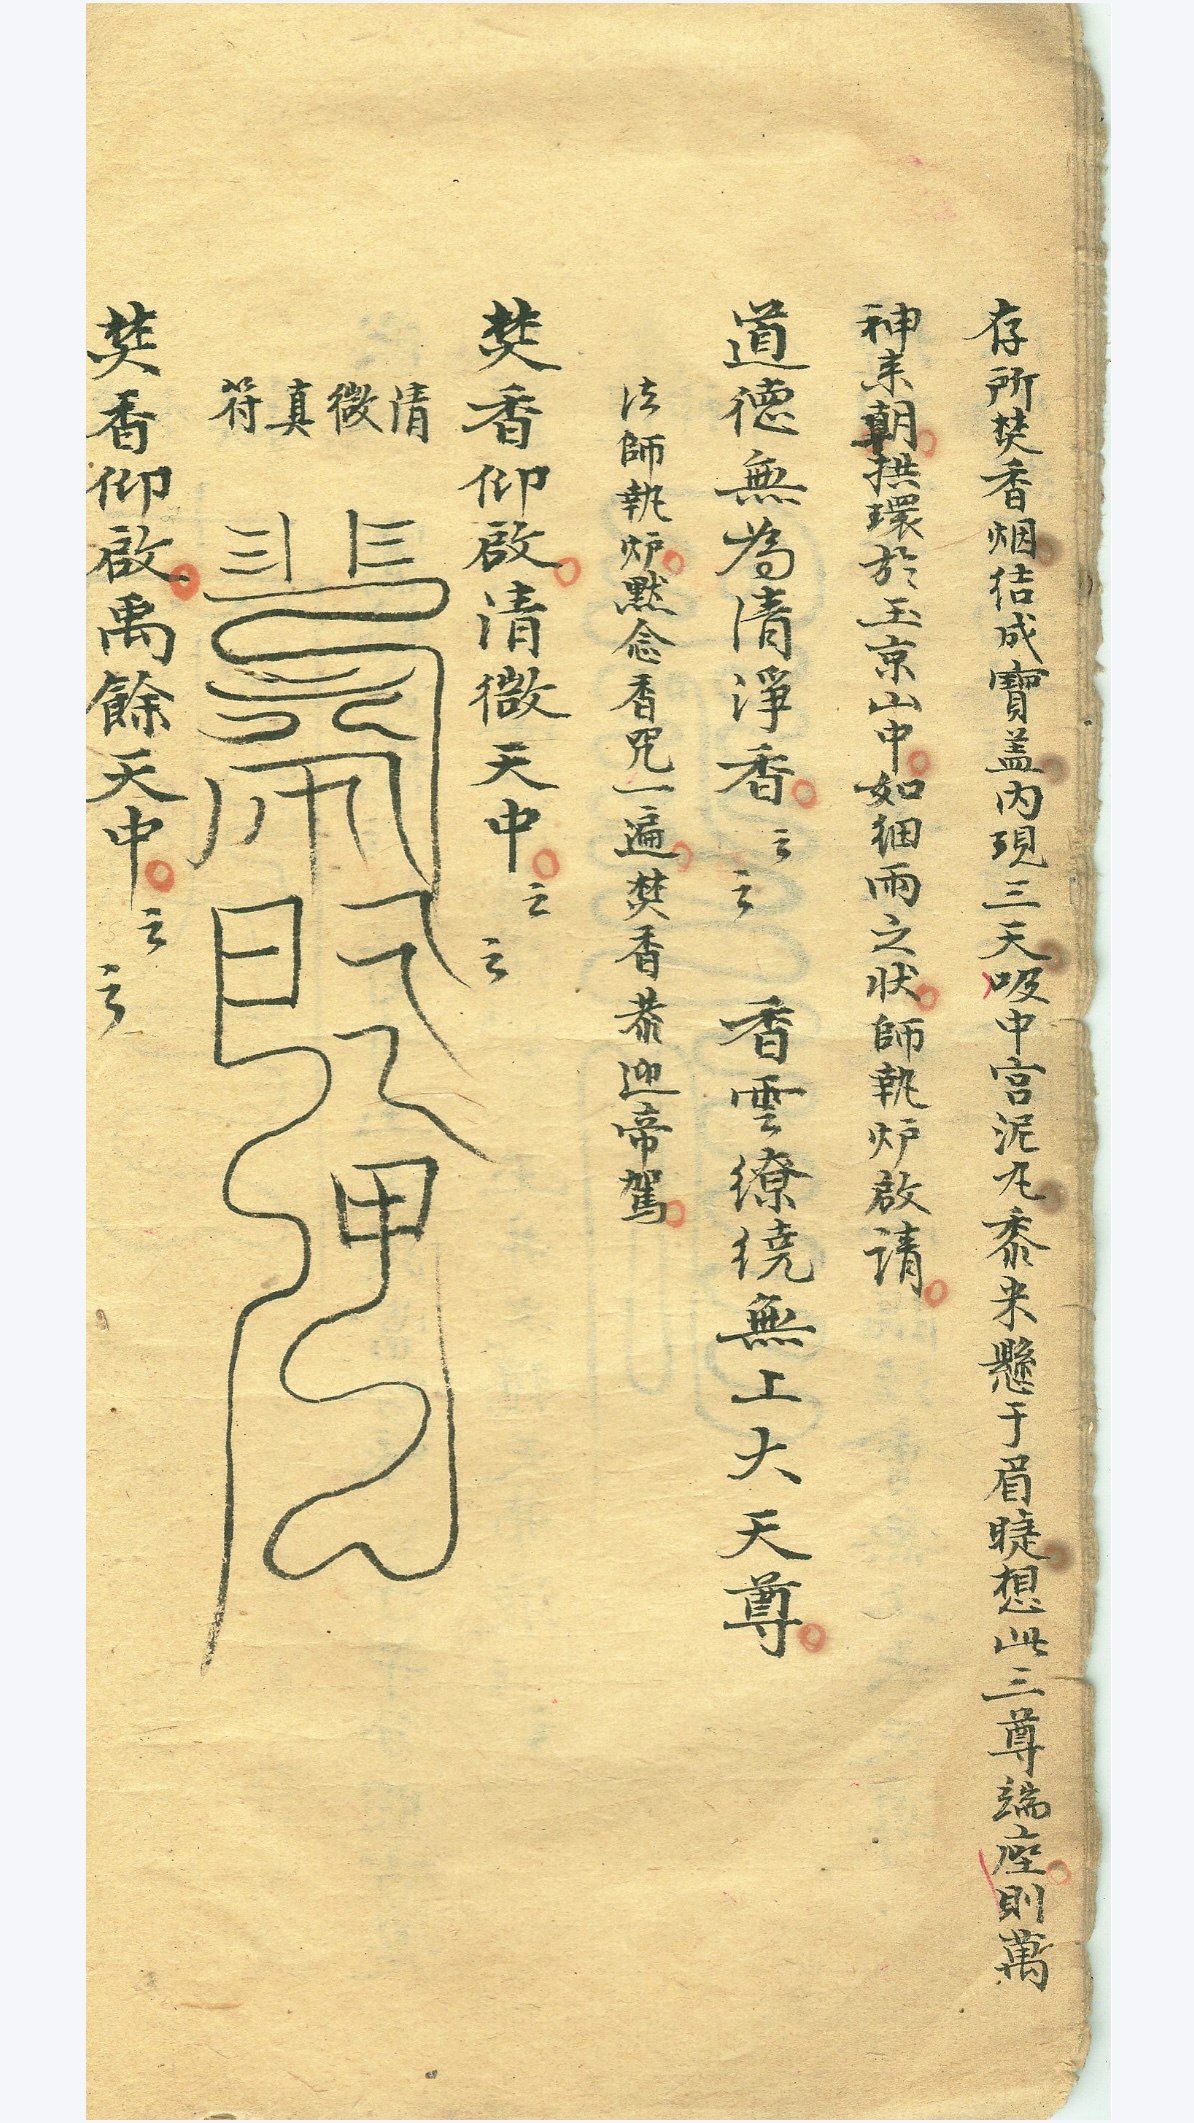 存所焚香烟结成寶盖内現三天吸中宫泥丸黍米懸于眉睫想此三尊端座則萬
神来朝拱環於玉京山中如細雨之状師執炉啟請
道德無為清淨香云云 香雲繚繞無上大天尊
法師執炉默念香咒一遍焚香恭迎帝駕
焚香仰啟清微天中云云
清微真符
焚香仰啟禹餘天中云云